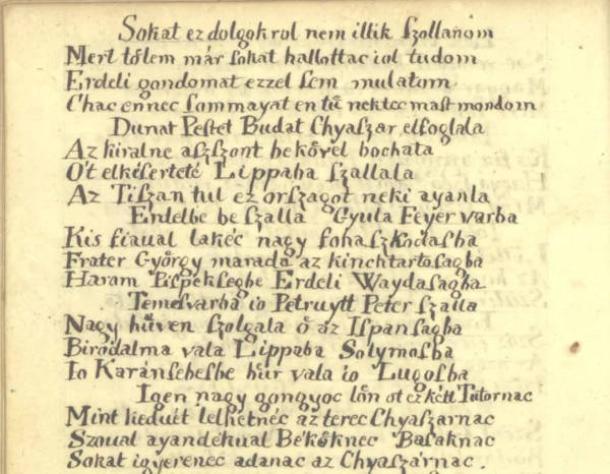 Sokat ez dolgokrol nem illik ſzollanom
Mert tólem már ſokat hallottac iol tudom
Erdeli gondomat ezzel ſem mulatom
Chac ennec ſommayat en tű nektec maſt mondom
Dunat Peſtet Budat Chyaſzar elfoglala
Az kiralne aſzſzont bekővel bochata
Ót elkéſerteté Lippaba ſzallala
Az Tiſzan tul ez orſzagot neki ayanla
Erdelbe be ſzalla Gyula Feyer varba
Kis fiaual lakéc nagy fohaſzkodasba
Frater György marada az kinchtartoſagba
Haram Piſpekſegbe Erdeli Waydaſagba
Temeſvarba io Petruytt Peter ſzalla
Nagy hűven ſzolgala ő az Iſpanſagba
Birodalma vala Lippaba Solymoſba
Io Karánſebeſbe hűr vala io Lugoſba
Igen nagy gongyoc lőn ot ez kétt Tutornac
Mint keduét lelhetnéc az terec Chyaſzarnac
Szoual ayandekual Békőknec Baſaknac
Sokat igyerenec adanac az Chyaſzárnac